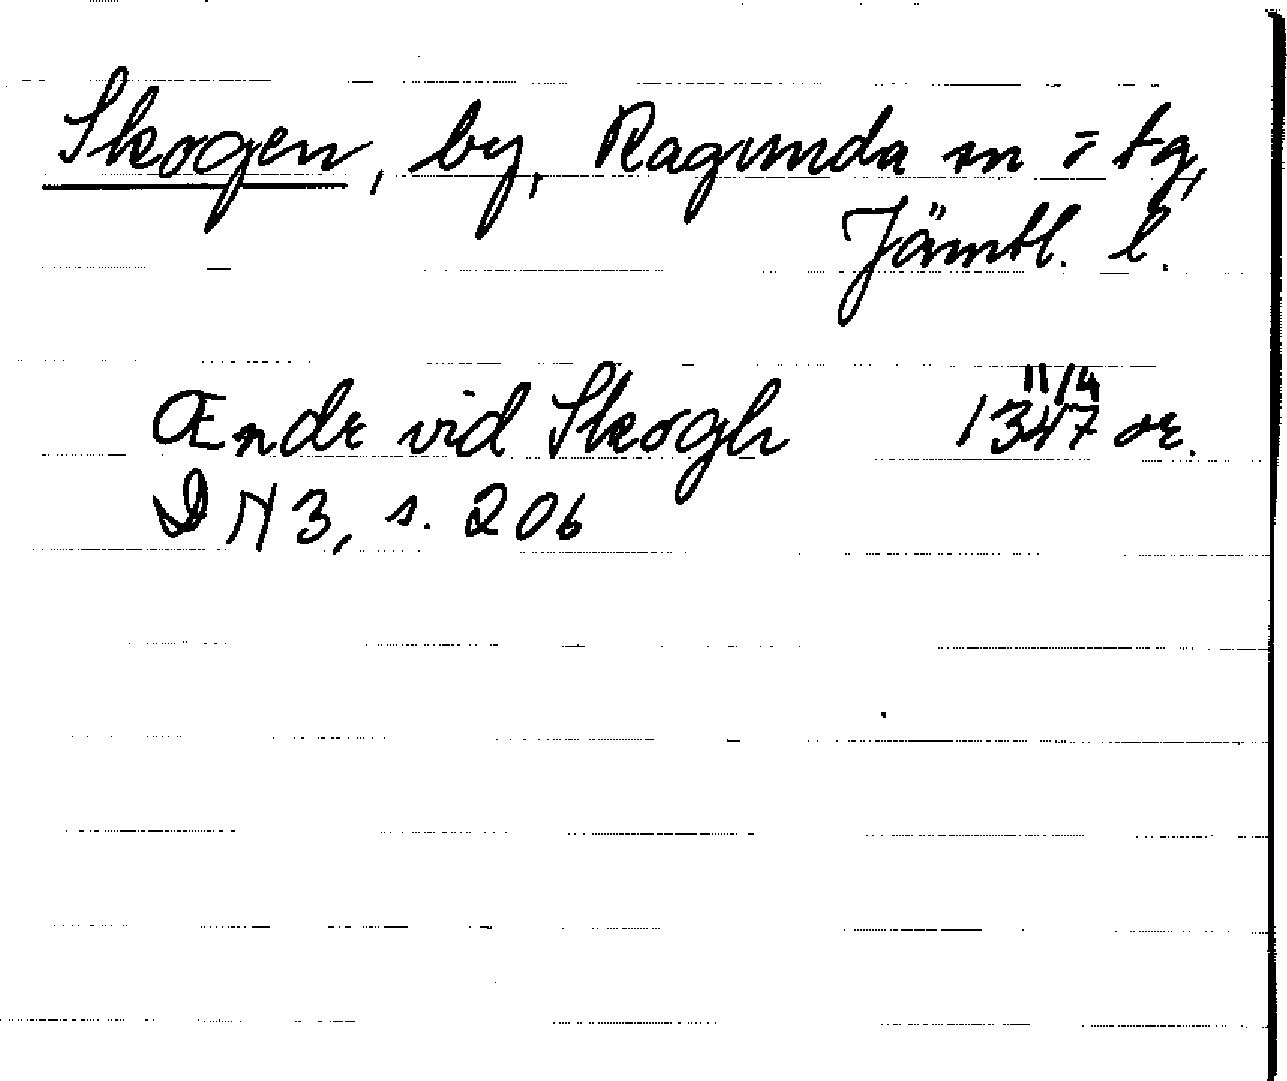 Skogen, by, Ragunda sn = tg,
Jämtl. l.
Ændr vid Skogh 11/4 1347 or.
DN 3, s. 206